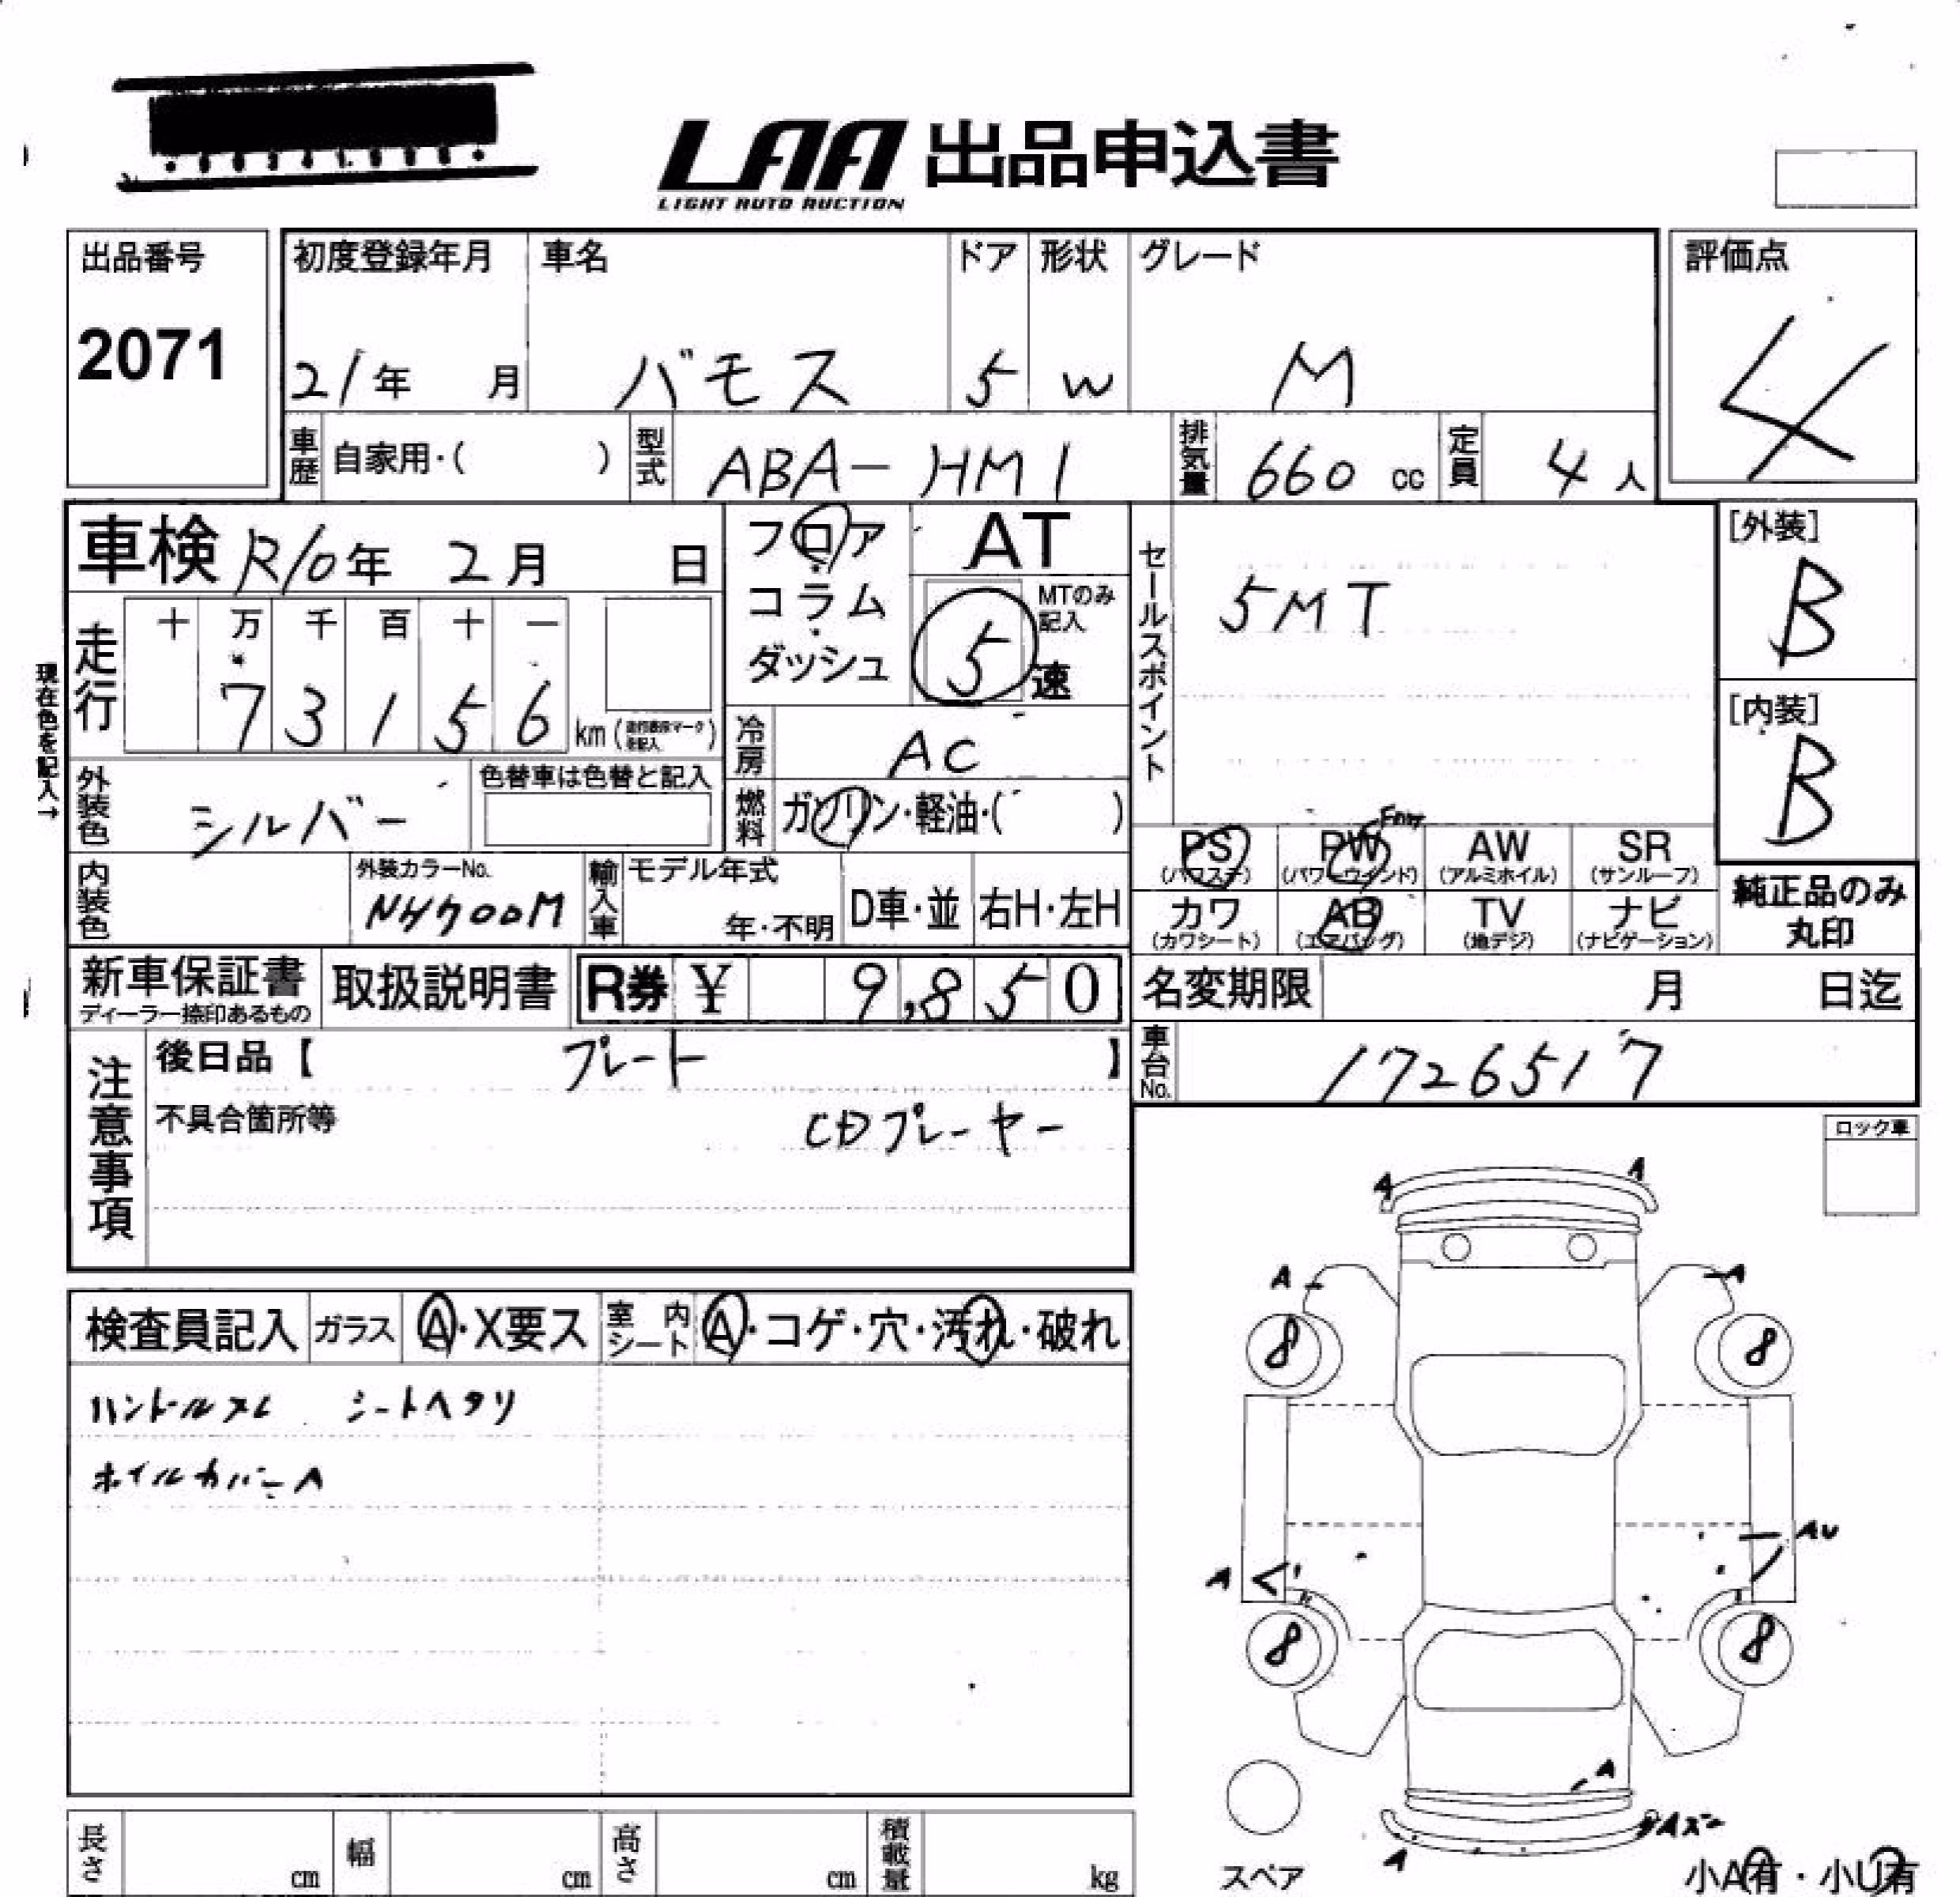 LAA 出品申込書
LIGHT AUTO AUCTION
出品番号
2071
初度登録年月
21年 月
車名
バモス
ドア
5
形状
W
グレード
M
評価点
4
車歴 自家用・( )
型式 ABA-HM1
排気量 660 cc
定員 4 人
車検 R10年 2月 日
フロア
コラム
ダッシュ
AT
MTのみ記入
5速
セールスポイント
5MT
[外装]
B
[内装]
B
現在色を記入→
走行
十 万 千 百 十 一
7 3 1 5 6 km
冷房 AC
燃料 ガソリン・軽油・( )
外装色 シルバー
色替車は色替と記入
内装色
外装カラーNo.
NH700M
輸入車
モデル年式
年・不明
D車・並
右H・左H
PS
(パワステ)
PW
(パワーウインド)
AW
(アルミホイル)
SR
(サンルーフ)
カワ
(カワシート)
AB
(エアバッグ)
TV
(地デジ)
ナビ
(ナビゲーション)
純正品のみ
丸印
新車保証書
ディーラー捺印あるもの
取扱説明書
R券 ¥ 9,850
名変期限 月 日迄
車台No. 1726517
注意事項
後日品【 プレート 】
不具合箇所等
CDプレーヤー
ロック車
検査員記入
ガラス A・X要ス
室内シート A・コゲ・穴・汚れ・破れ
ハンドルスレ シートヘタリ
ホイルカバーA
A A
A A
8 8
AU
A
8 8
A
A
スペア
小A有・小U有
長さ cm
幅 cm
高さ cm
積載量 kg